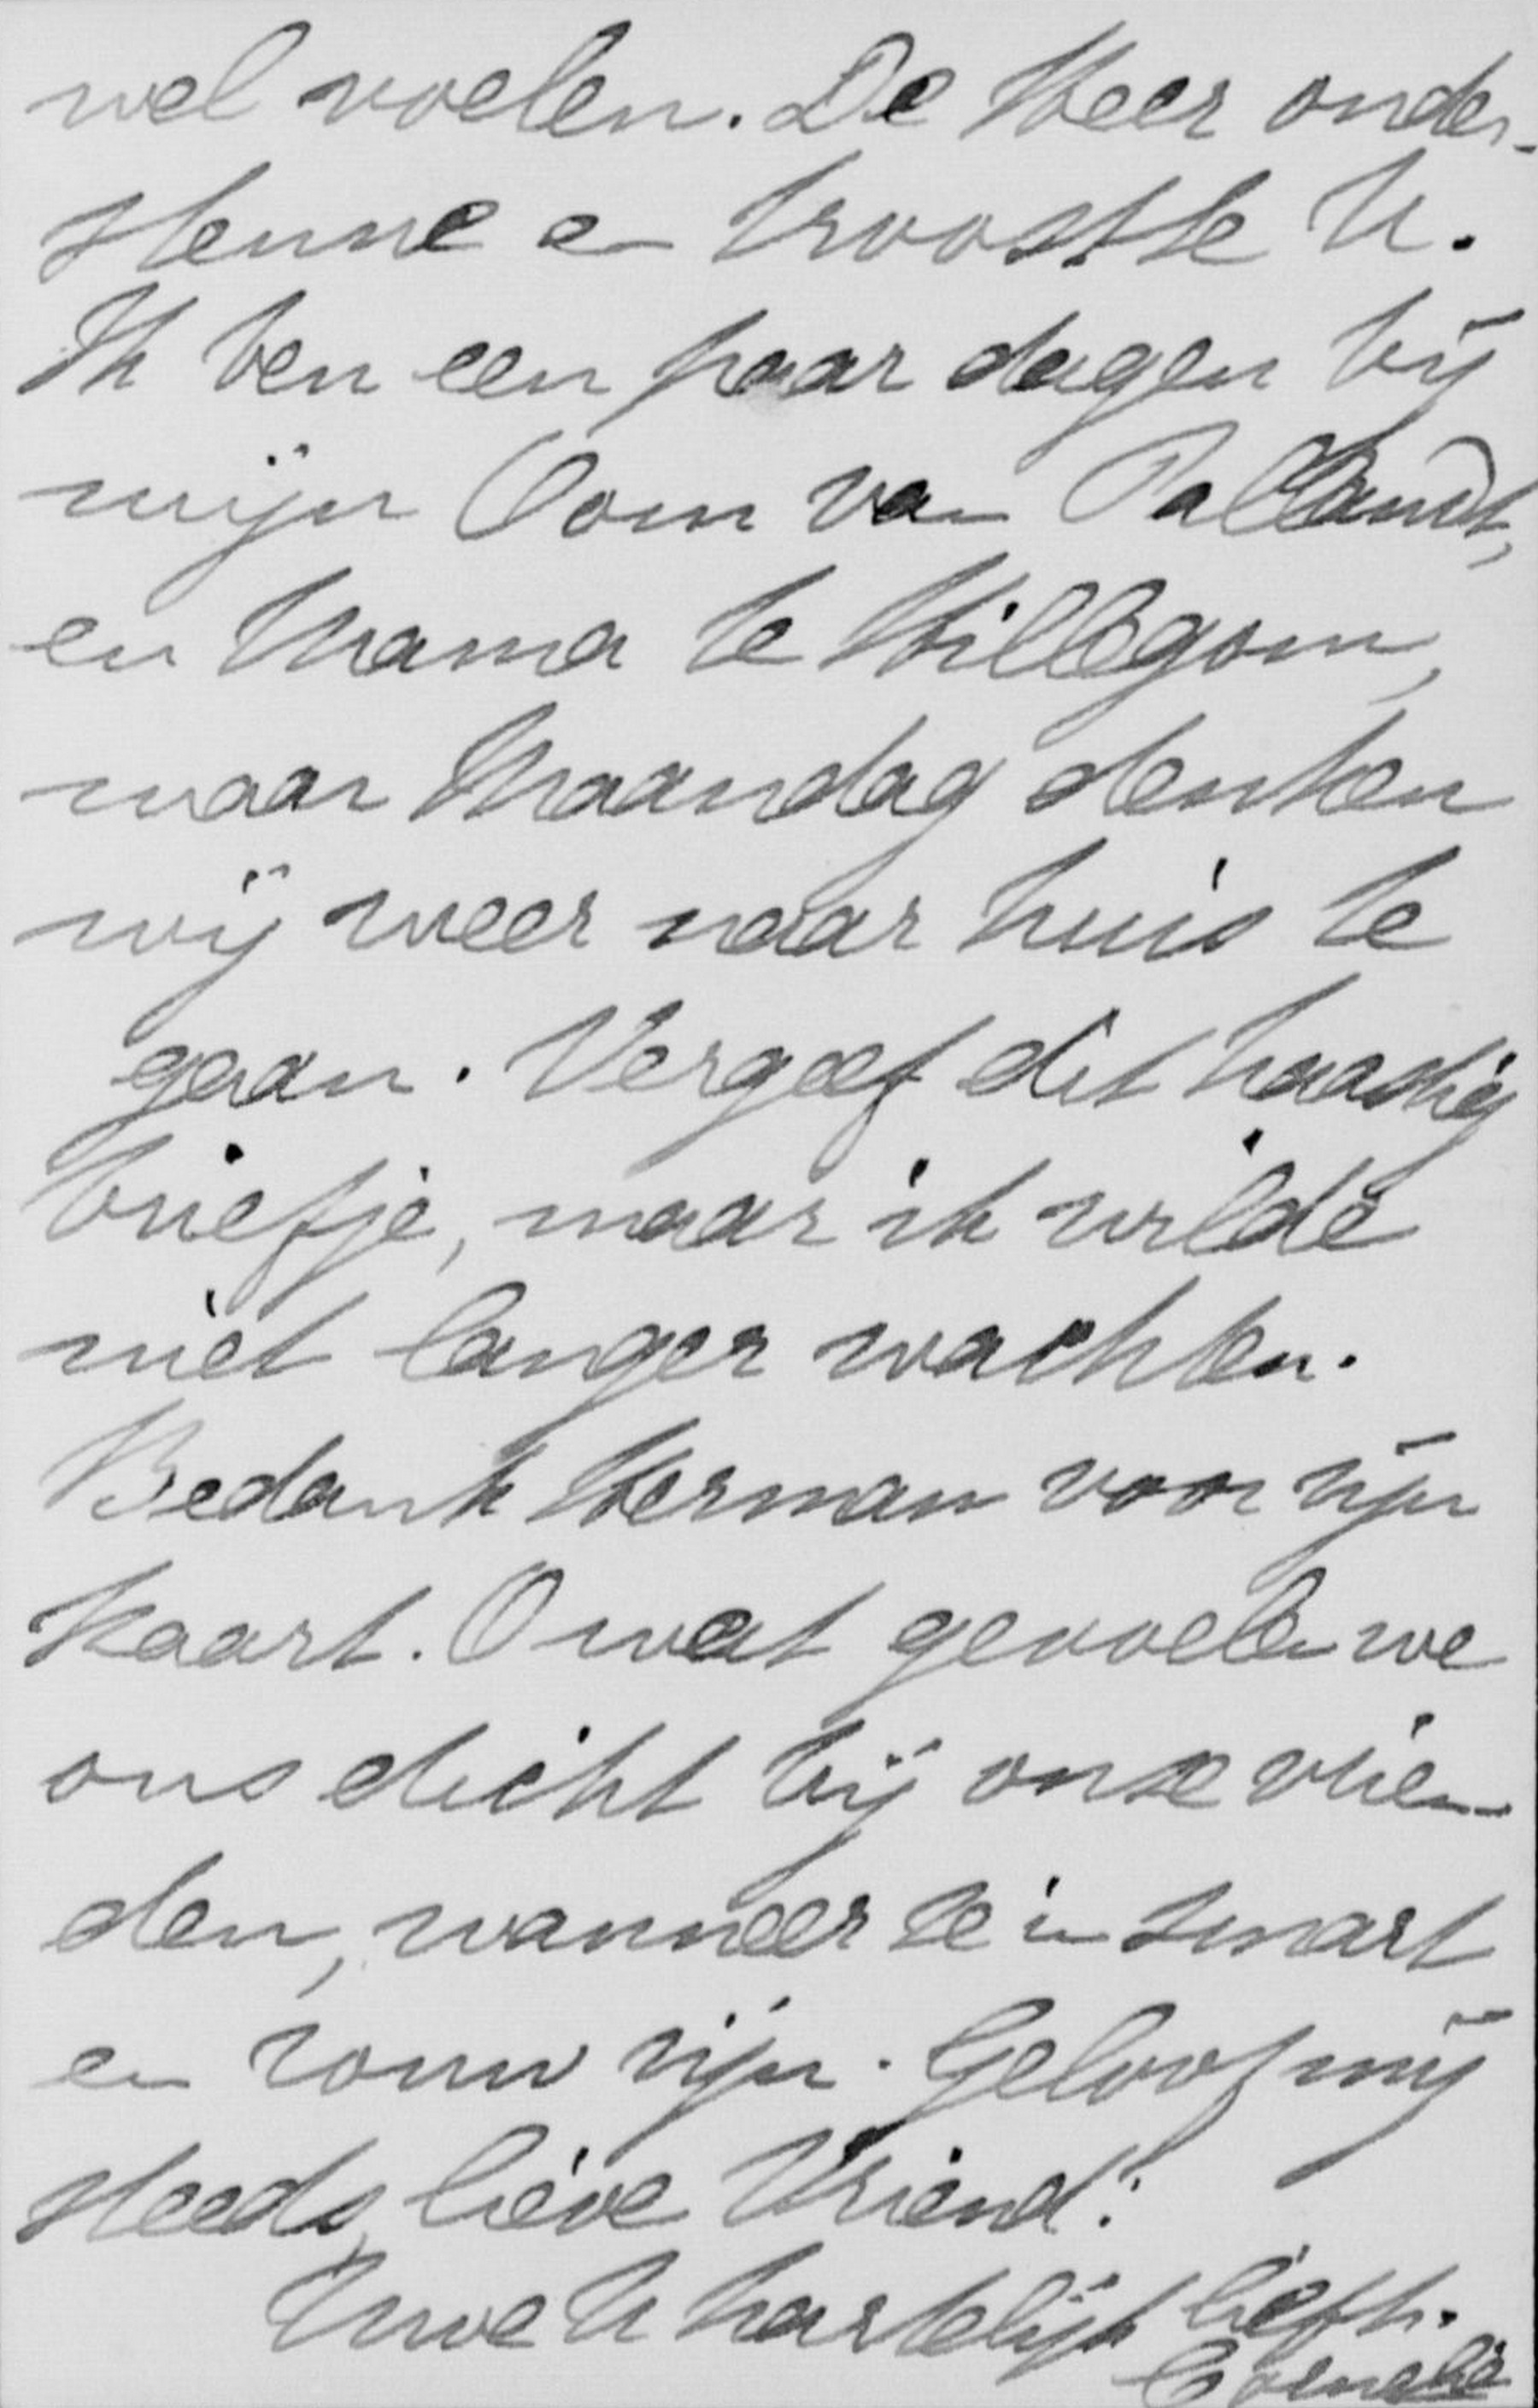 wel voelen. De Heer onder-
steune en trooste U.
Ik ben een paar dagen bij
mijn Oom van Pallandt,
en Mama te Hillegom,
maar Maandag denken
wij weer naar huis te
gaan. Vergeef dit haastig
briefje, maar ik wilde
niet langer wachten.
Bedank Herman voor zijn
kaart. O wat gevoelen we
ons dicht bij onze vrien-
den, wanneer ze in smart
en rouw zijn. Geloof mij
steeds, lieve Vriend:
Uwe U hartelijk liefh.
Cornelie